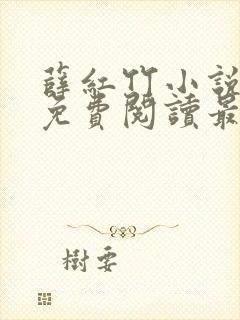 薛紅竹小說
免費閱讀最
樹要